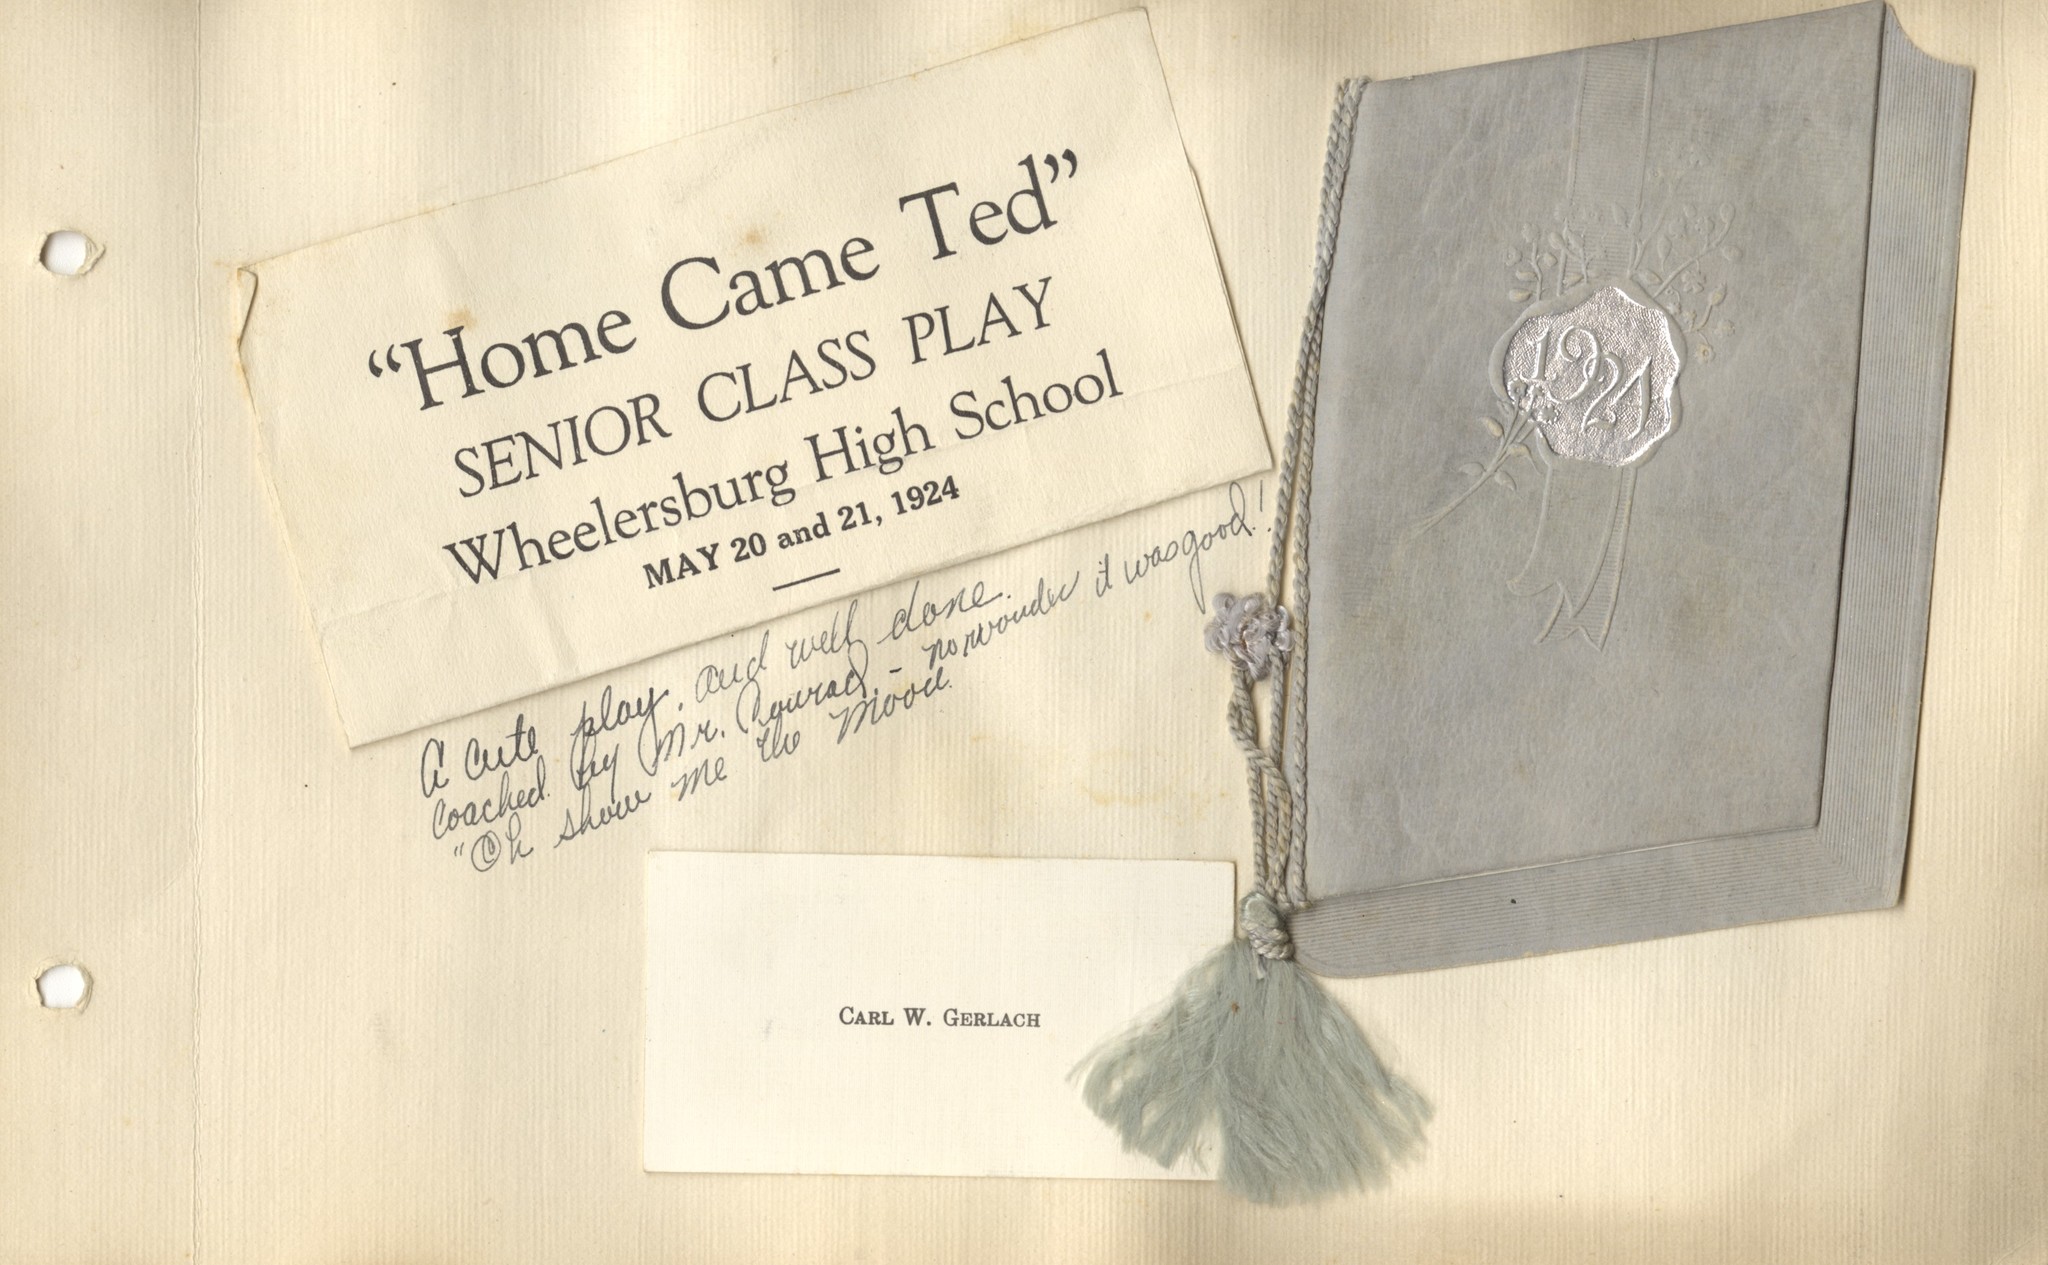 “Home Came Ted”
SENIOR CLASS PLAY
Wheelersburg High School
MAY 20 and 21, 1924
A cute play, and well done.
Coached by Mr. Conrad. - no wonder it was good!
"Oh show me the Mood.
1924
CARL W. GERLACH